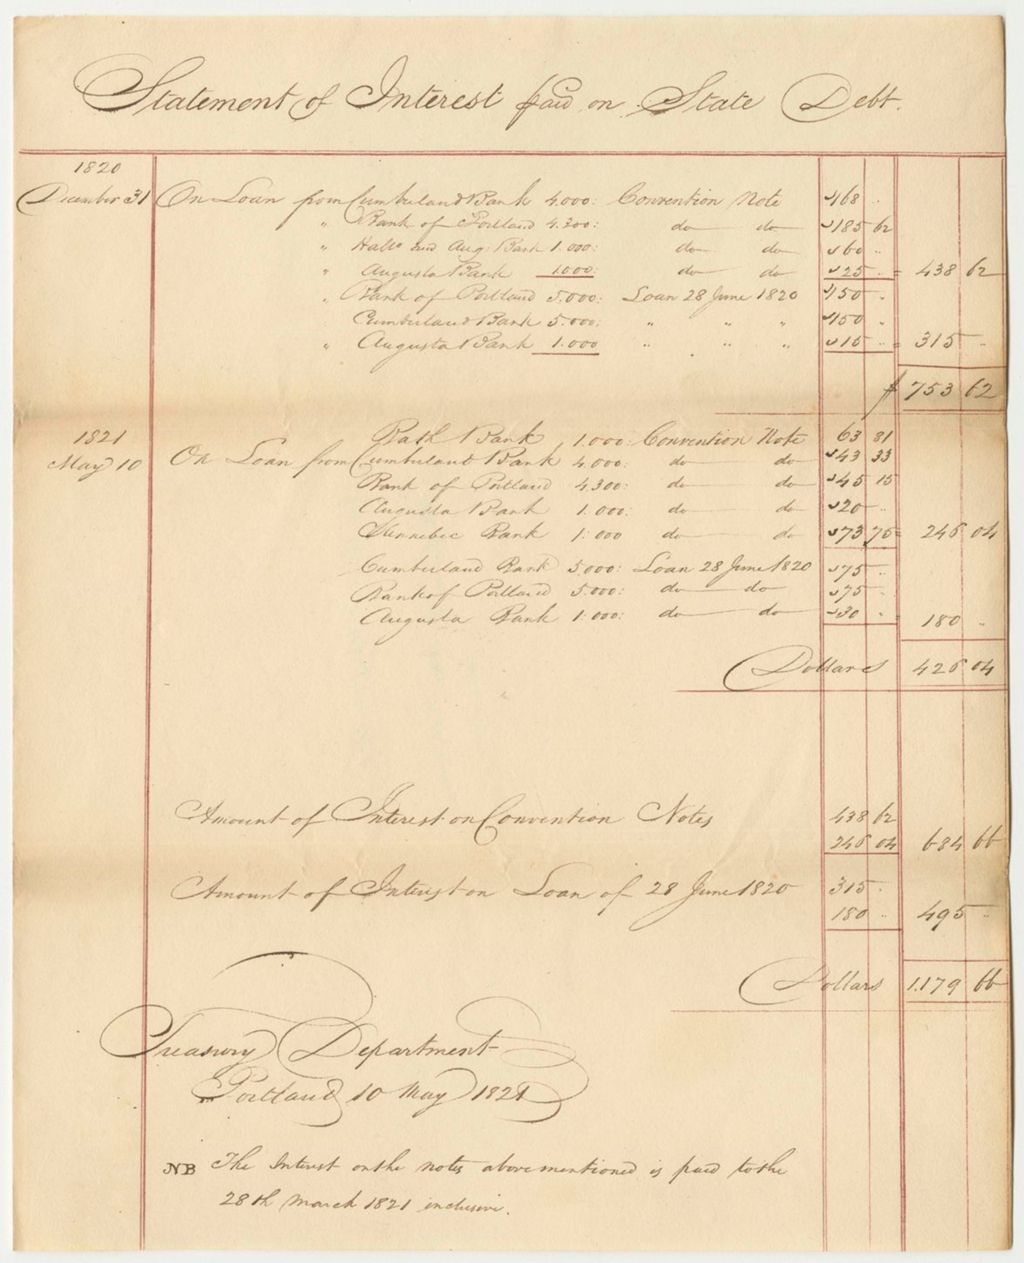 Statement of Interest paid on State Debt.
1820
December 31 On Loan from Cumberland Bank 4.000: Convention Note 168 "
" Bank of Portland 4.300: do do 185 62
" Hallo and Aug: Bank 1.000: do do 60 "
" Augusta Bank 1000: do do 25 " = 438 62
" Bank of Portland 5.000: Loan 28 June 1820 150 "
Cumberland Bank 5.000: " " " 150 "
" Augusta Bank 1.000 " " " 15 " = 315 "
$ 753 62
1821 Bath Bank 1.000: Convention Note 63 81
May 10 On Loan from Cumberland Bank 4.000: do do 43 33
Bank of Portland 4.300: do do 45 15
Augusta Bank 1.000: do do 20 "
Kennebec Bank 1.000 do do 73 75 = 246 04
Cumberland Bank 5.000: Loan 28 June 1820 75 "
Bank of Portland 5.000: do do 75 "
Augusta Bank 1.000: do do 30 " 180 "
Dollars 426 04
Amount of Interest on Convention Notes 438 62
246 04 684 66
Amount of Interest on Loan of 28 June 1820 315 "
180 " 495 "
Dollars 1.179 66
Treasury Department
Portland 10 May 1821
NB The Interest on the notes above mentioned is paid to the
28th March 1821 inclusive.